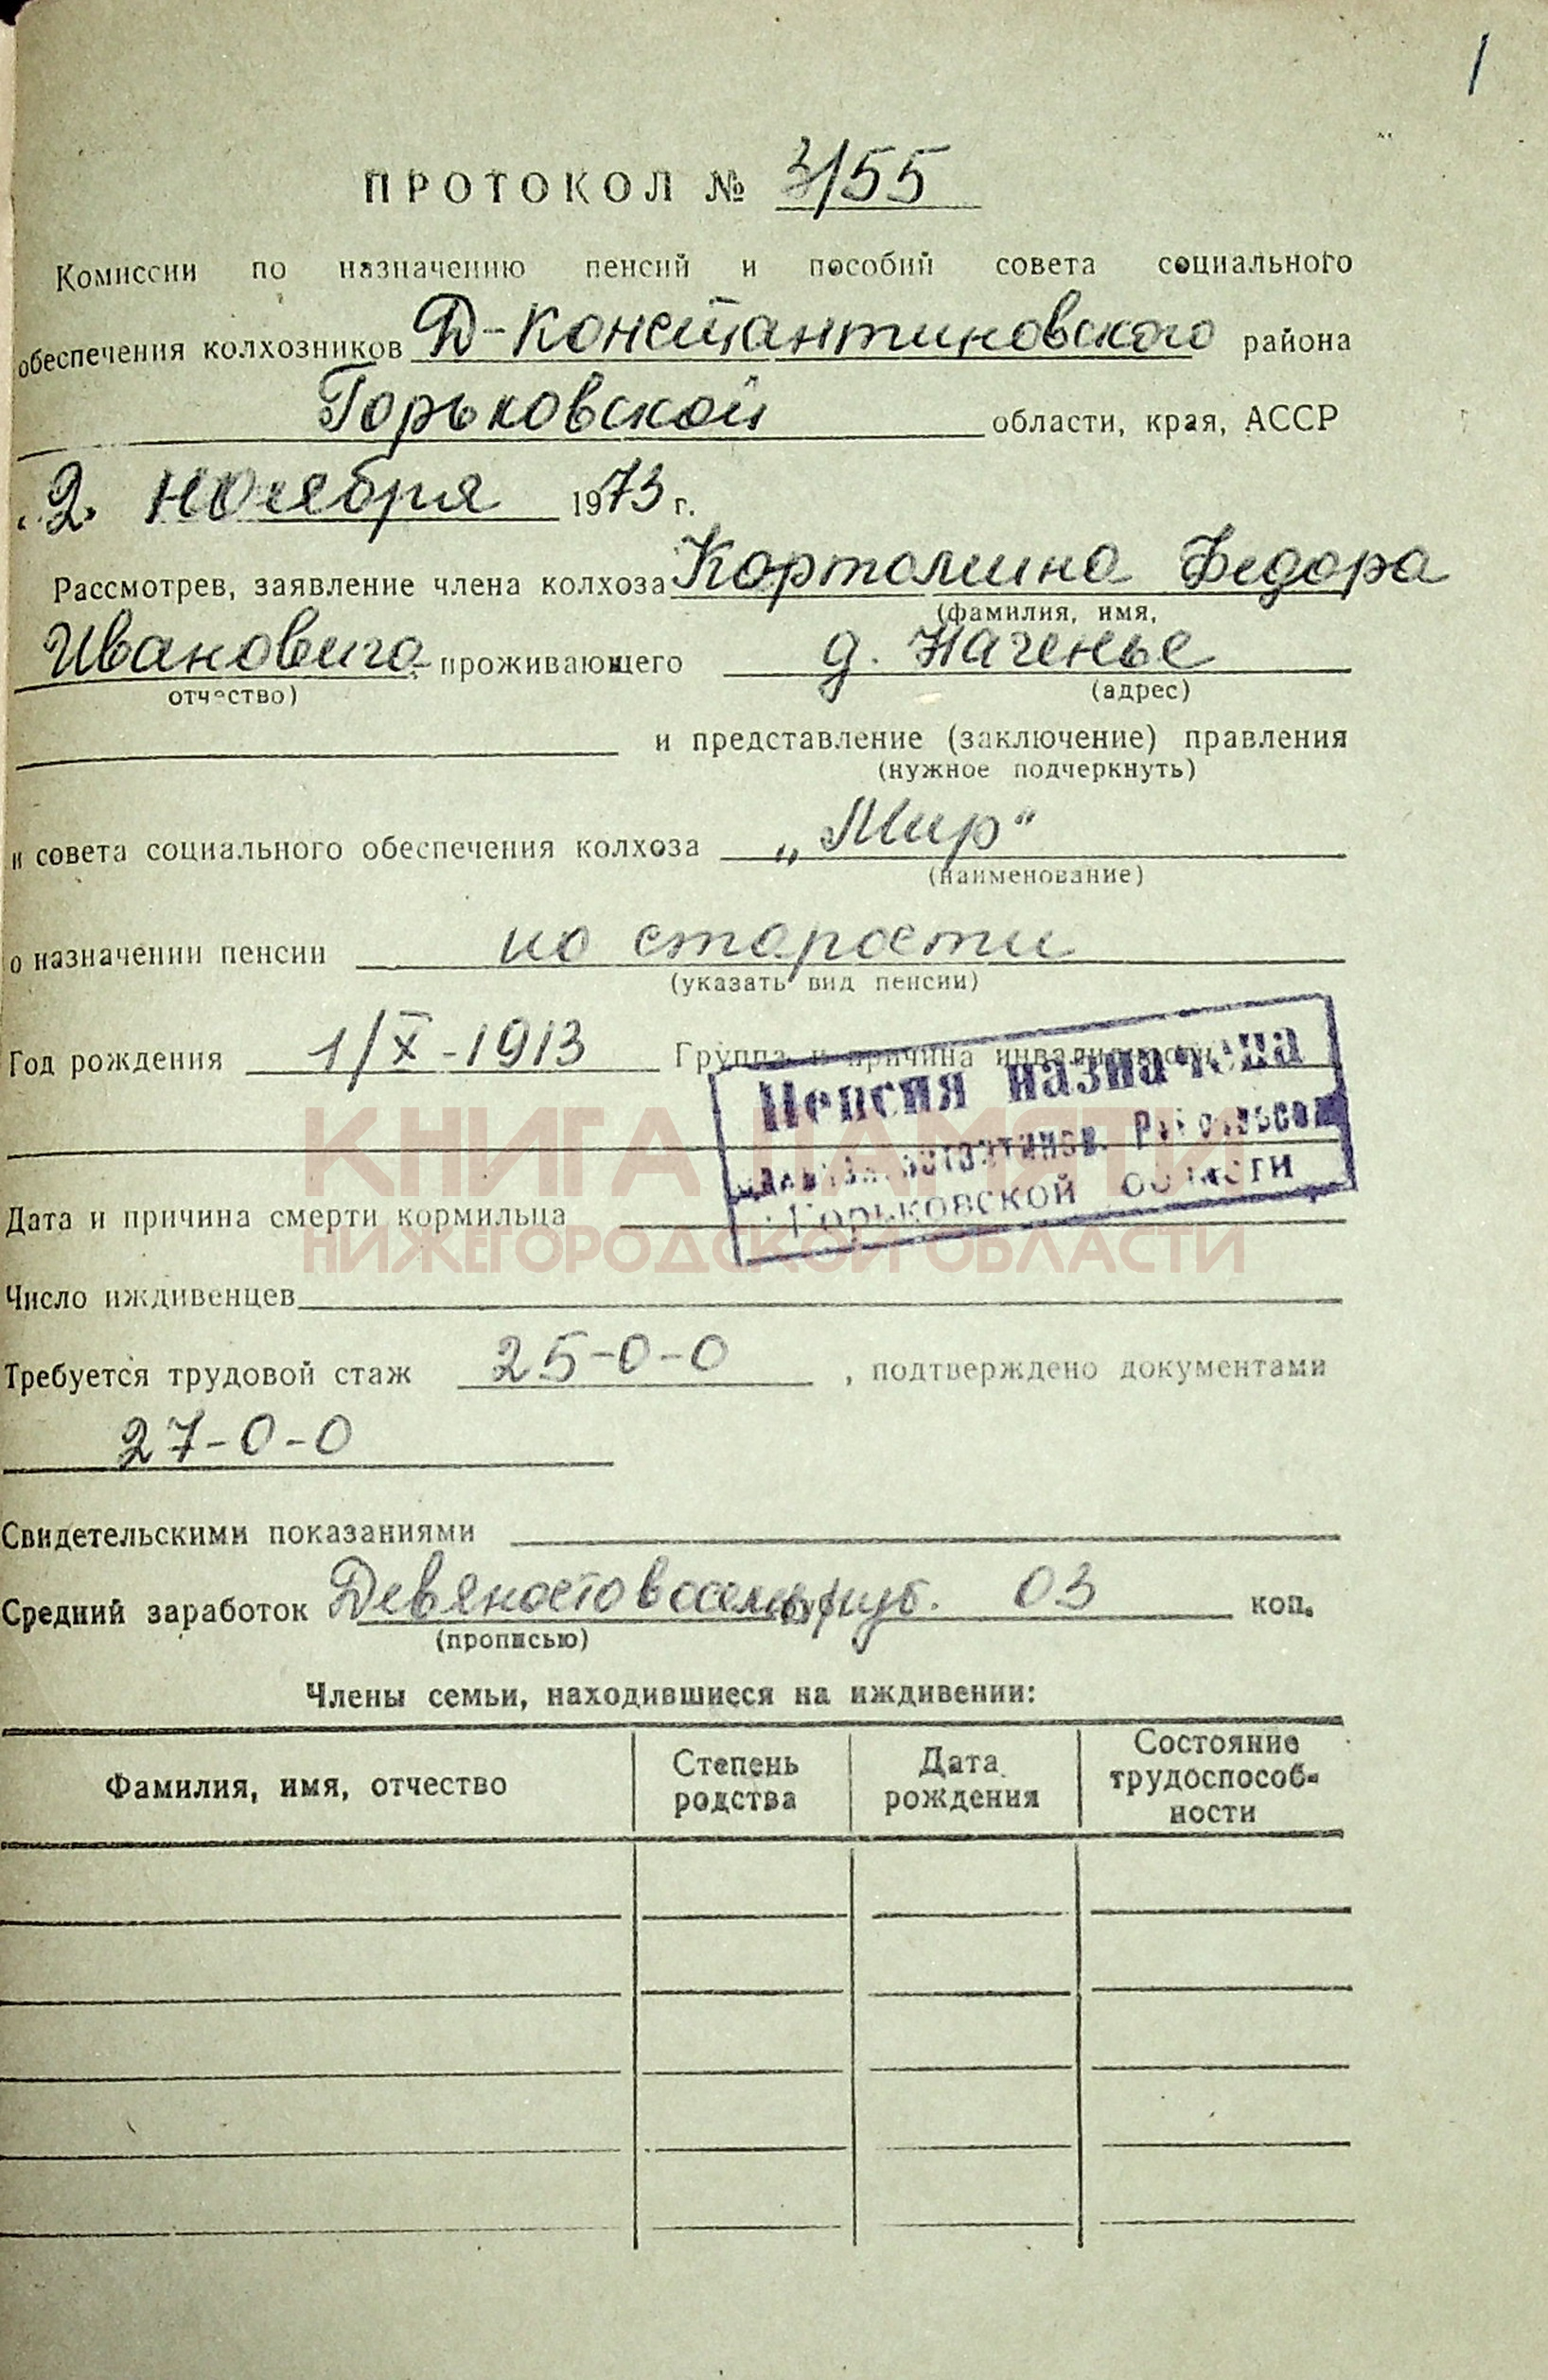 1
ПРОТОКОЛ № 3/55
Комиссии по назначению пенсий и пособий совета социального
обеспечения колхозников Д-Константиновского района
Горьковской области, края, АССР
„2“ ноября 1973 г.
Рассмотрев, заявление члена колхоза Кортомина Федора
(фамилия, имя,
Ивановича проживающего д. Наченье
отчество) (адрес)
и представление (заключение) правления
(нужное подчеркнуть)
и совета социального обеспечения колхоза „Мир“
(наименование)
о назначении пенсии по старости
(указать вид пенсии)
Год рождения 1/X-1913 Группа и причина
Пенсия назначена
Горьковской области
КНИГА ПАМЯТИ
НИЖЕГОРОДСКОЙ ОБЛАСТИ
Дата и причина смерти кормильца
Число иждивенцев
Требуется трудовой стаж 25-0-0, подтверждено документами
27-0-0
Свидетельскими показаниями
Средний заработок Девяносто восемь руб. 03 коп.
(прописью)
Члены семьи, находившиеся на иждивении:
Фамилия, имя, отчество
Степень
родства
Дата
рождения
Состояние
трудоспособ-
ности